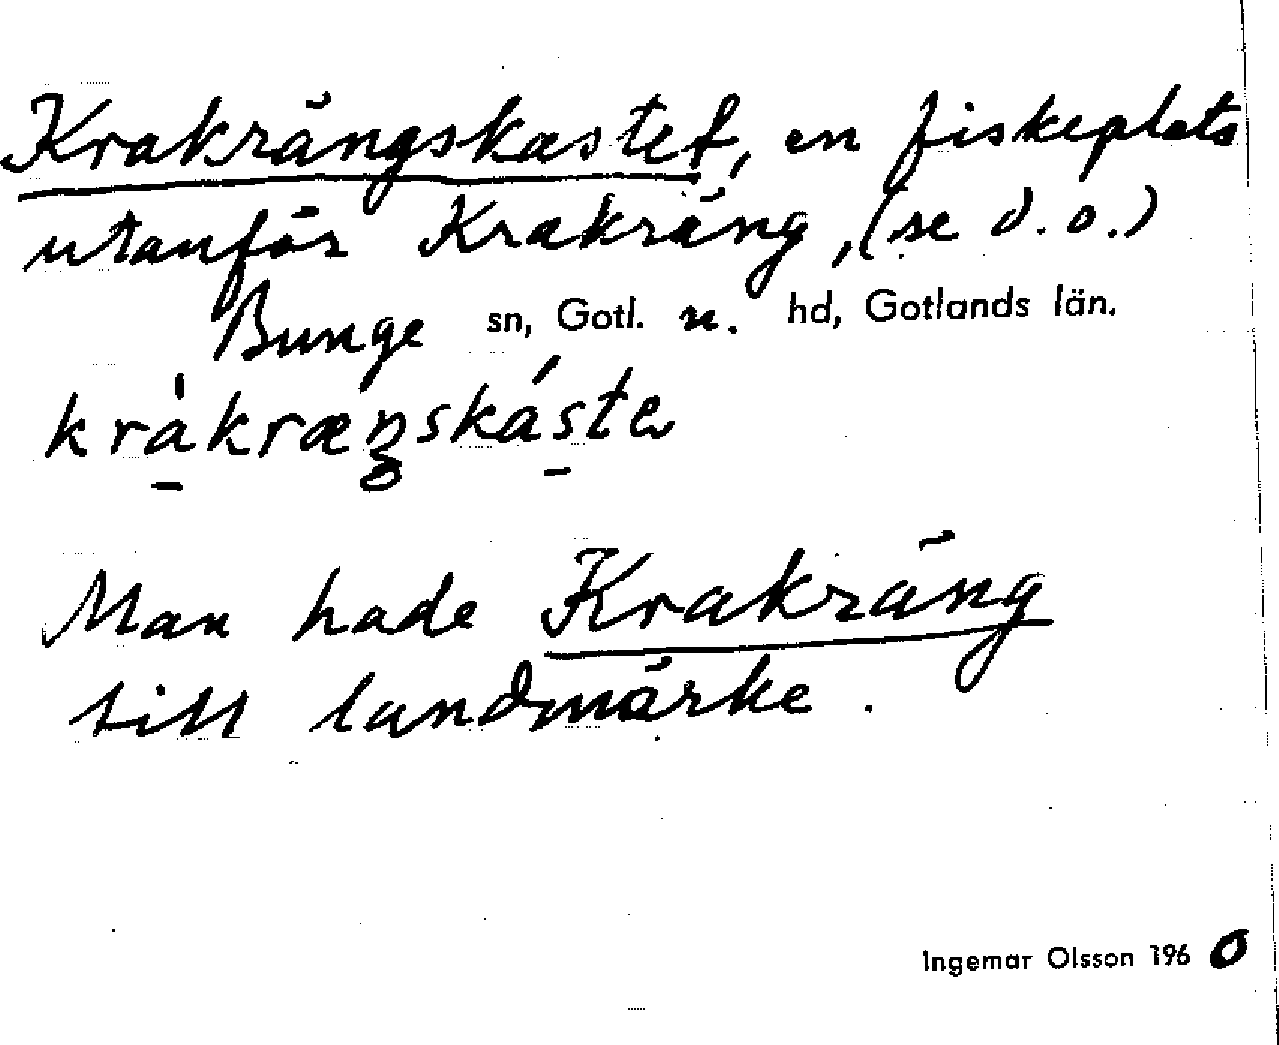 Krakrängskastet, en fiskeplats
utanför Krakräng, (se d.o.)
Bunge sn, Gotl. n. hd, Gotlands län.
Man hade Krakräng
till landmärke.
Ingemar Olsson 1960